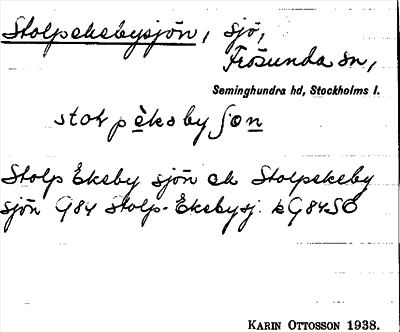 Stolpeksbysjön, sjö,
Frösunda sn,
Seminghundra hd, Stockholms l.
stolpèksbyʃon
Stolp Eksby sjön ok Stolpeksby
sjön G84 Stolp-Eksbysj. kG84SO
KARIN OTTOSSON 1938.